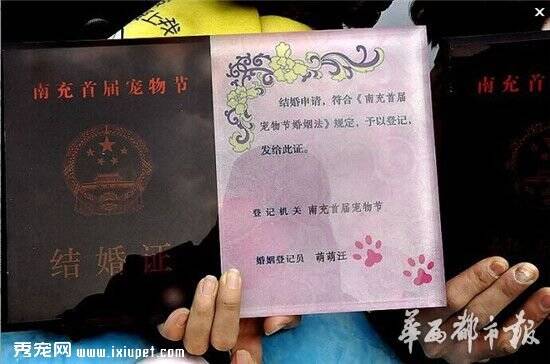 南充首届宠物节
结婚证
结婚申请，符合《南充首届
宠物节婚姻法》规定，予以登记，
发给此证。
登记机关 南充首届宠物节
婚姻登记员 萌萌汪
华西都市报
秀宠网 www.ixiupet.com